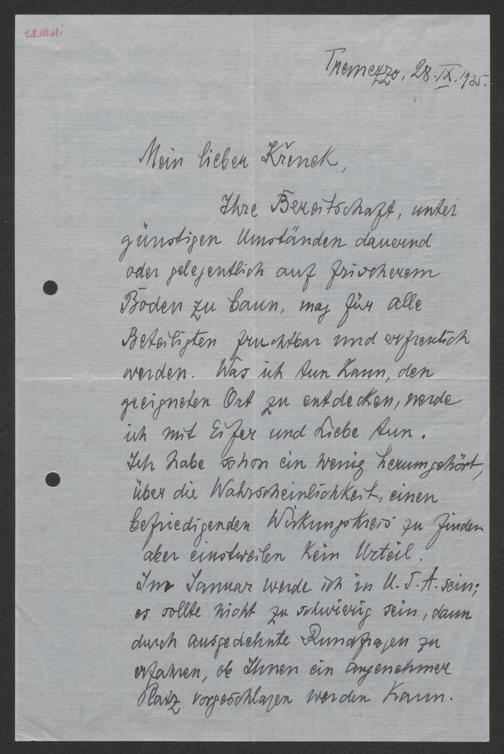 Tremezzo, 28. IX. 1935.
Mein lieber Křenek,
Ihre Bereitschaft, unter
günstigen Umständen dauernd
oder gelegentlich auf frischerem
Boden zu baun, mag für alle
Beteiligten fruchtbar und erfreulich
werden. Was ich tun kann, den
geeigneten Ort zu entdecken, werde
ich mit Eifer und Liebe tun.
Ich habe schon ein wenig herumgehört,
über die Wahrscheinlichkeit, einen
befriedigenden Wirkungskreis zu finden
aber einstweilen kein Urteil.
Im Januar werde ich in U.S.A. sein;
es sollte nicht zu schwierig sein, dann
durch ausgedehnte Rundfragen zu
erfahren, ob Ihnen ein angenehmer
Platz vorgeschlagen werden kann.